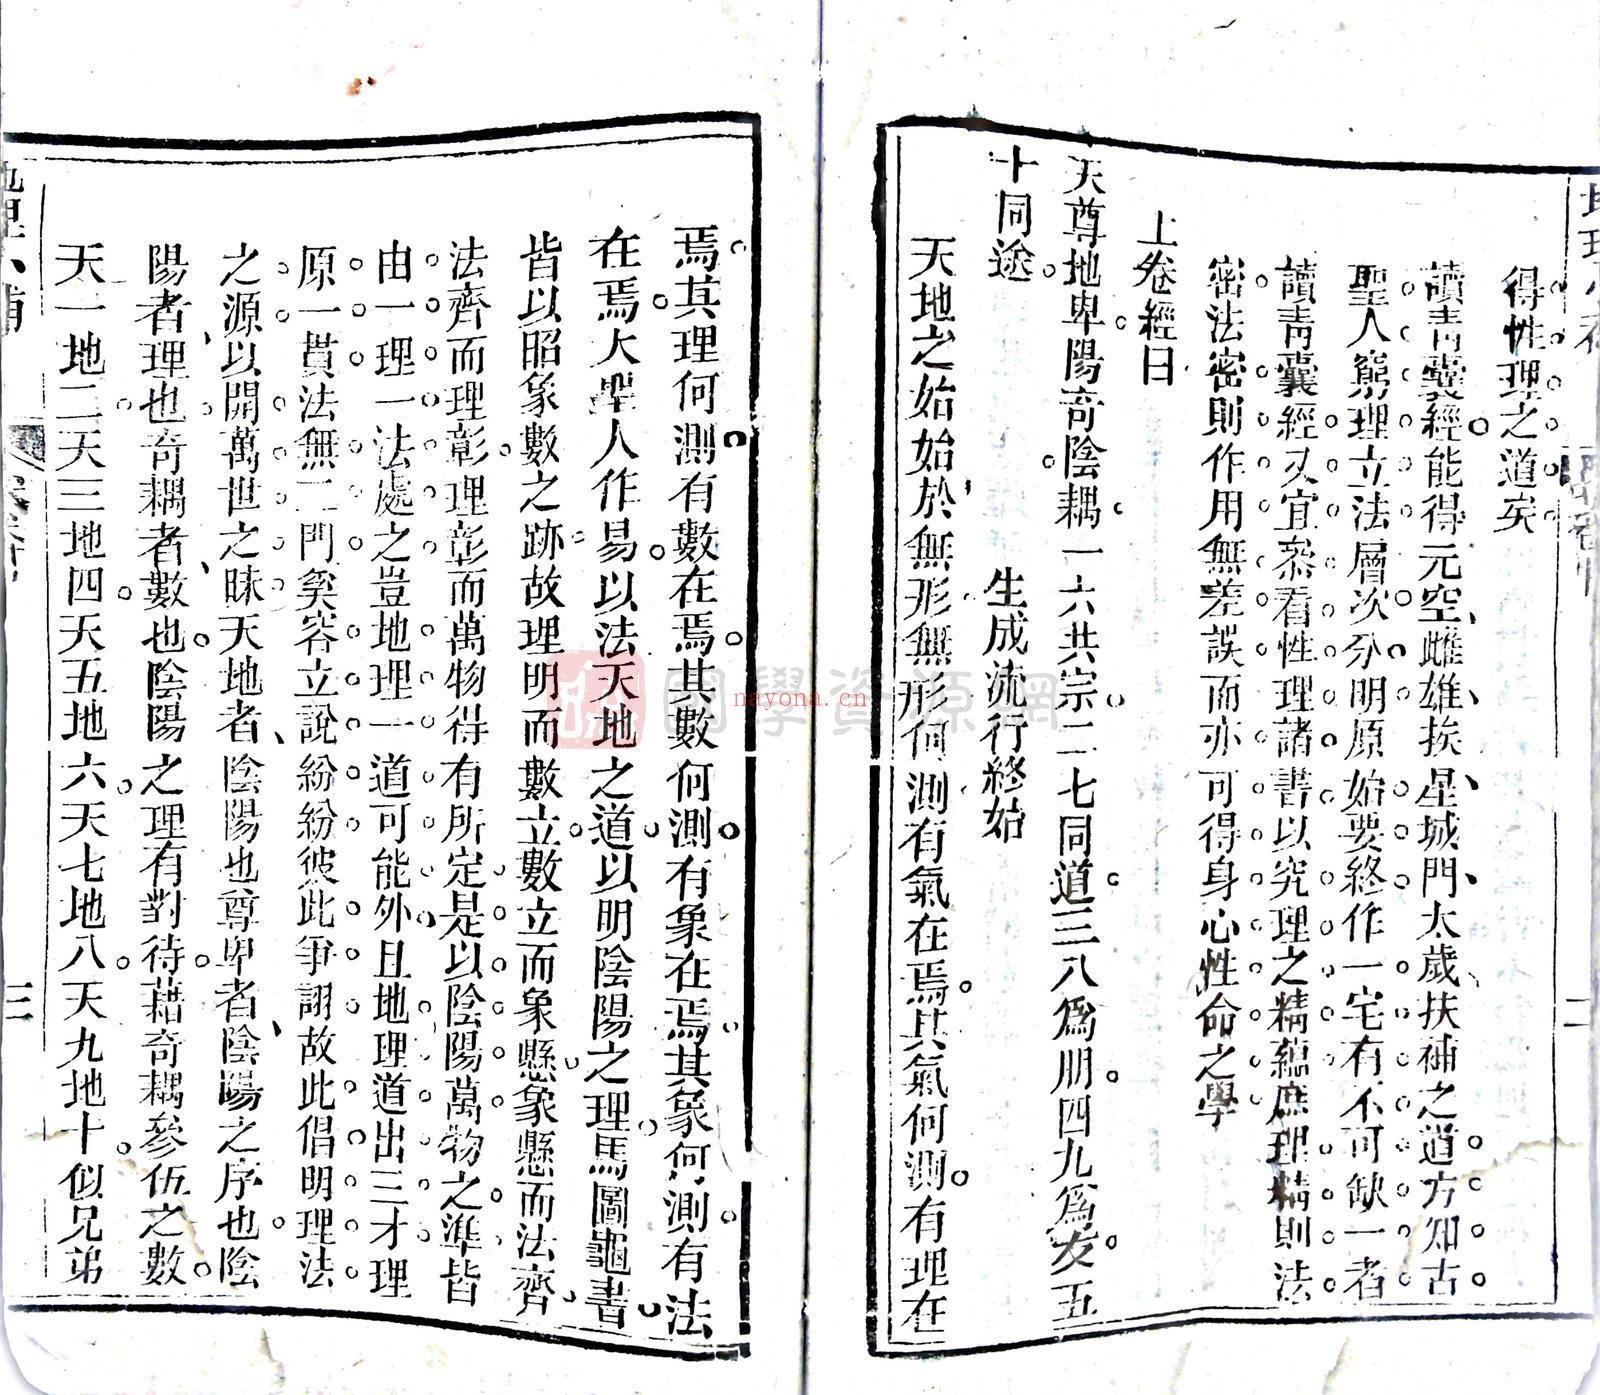 得性理之道矣
讀青囊經能得元空雌雄挨星城門太歲扶補之道方知古
聖人窮理立法層次分明原始要終作一宅有不可缺一者
讀青囊經又宜叅看性理諸書以究理之精蘊庶理精則法
密法密則作用無差誤而亦可得身心性命之學
上卷經曰
天尊地卑陽奇陰耦一六共宗二七同道三八爲朋四九爲友五
十同途 生成流行終始
天地之始始於無形無形何測有氣在焉其氣何測有理在
焉其理何測有數在焉其數何測有象在焉其象何測有法
在焉大聖人作易以法天地之道以明陰陽之理馬圖龜書
皆以昭象數之跡故理明而數立數立而象懸象懸而法齊
法齊而理彰理彰而萬物得有所定是以陰陽萬物之準皆
由一理一法處之豈地理一道可能外且地理道出三才理
原一貫法無二門奚容立說紛紛彼此爭詡故此倡明理法
之源以開萬世之昧天地者陰陽也尊卑者陰陽之序也陰
陽者理也奇耦者數也陰陽之理有對待藉奇耦參伍之數
天一地二天三地四天五地六天七地八天九地十似兄弟
三
國學資源網
nayona.cn